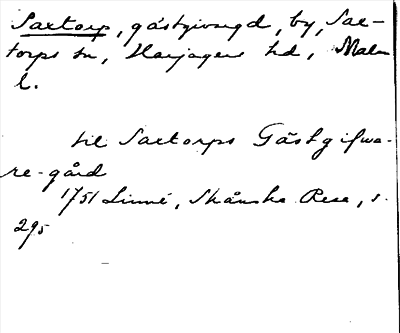 Saxtorp, gästgivregd, by, Sax-
torps sn, Harjagers hd, Malm
l.
til Saxtorps Gästgifwa-
re-gård
1751 Linné, Skånska Resa, s.
295